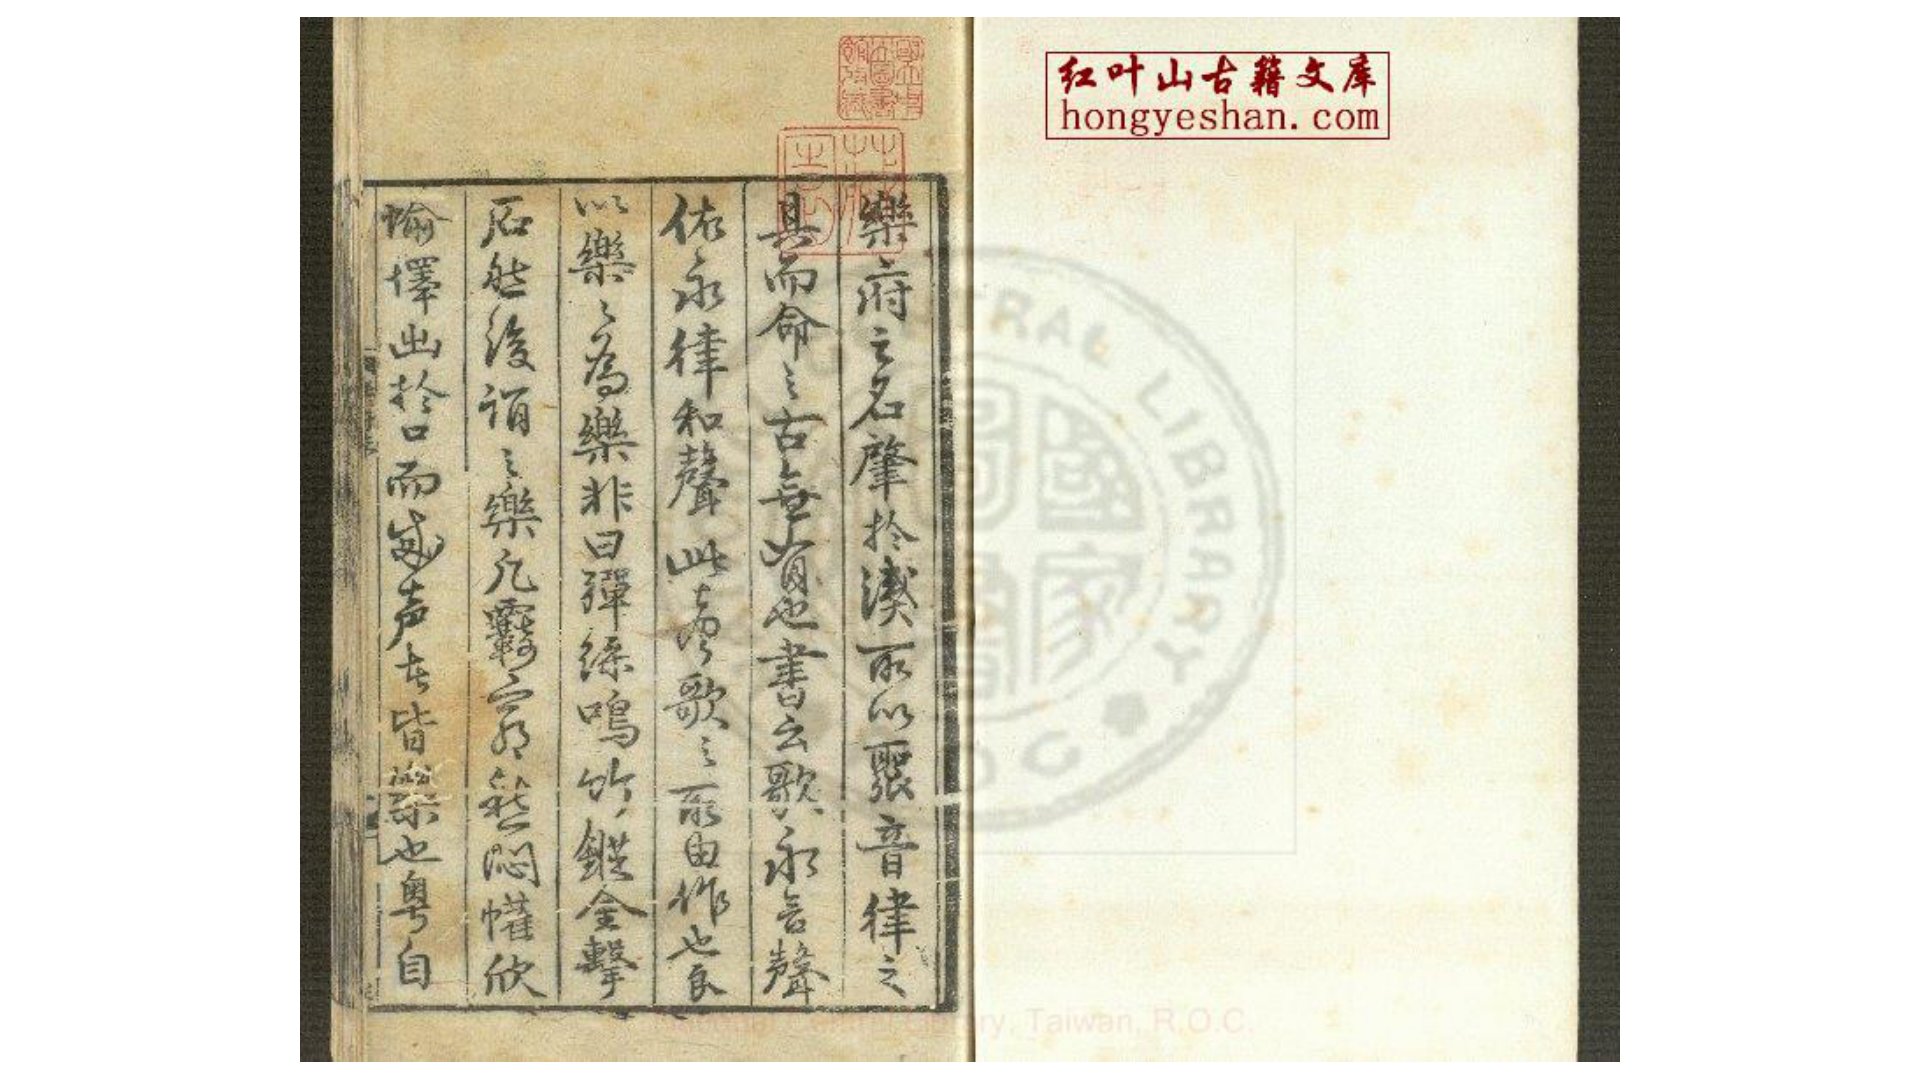 樂府之名肇扵漢所以聚音律之
具而命之古無有也書云歌永言聲
依永律和聲此專歌之所由作也良
以樂之為樂非曰彈絲鳴竹鏦金擊
石然後謂之樂凡羈窮愁悶懽欣
愉懌出扵口而成声者皆樂也粤自
红叶山古籍文库
hongyeshan.com
CENTRAL LIBRARY
National Central Library, Taiwan, R.O.C.